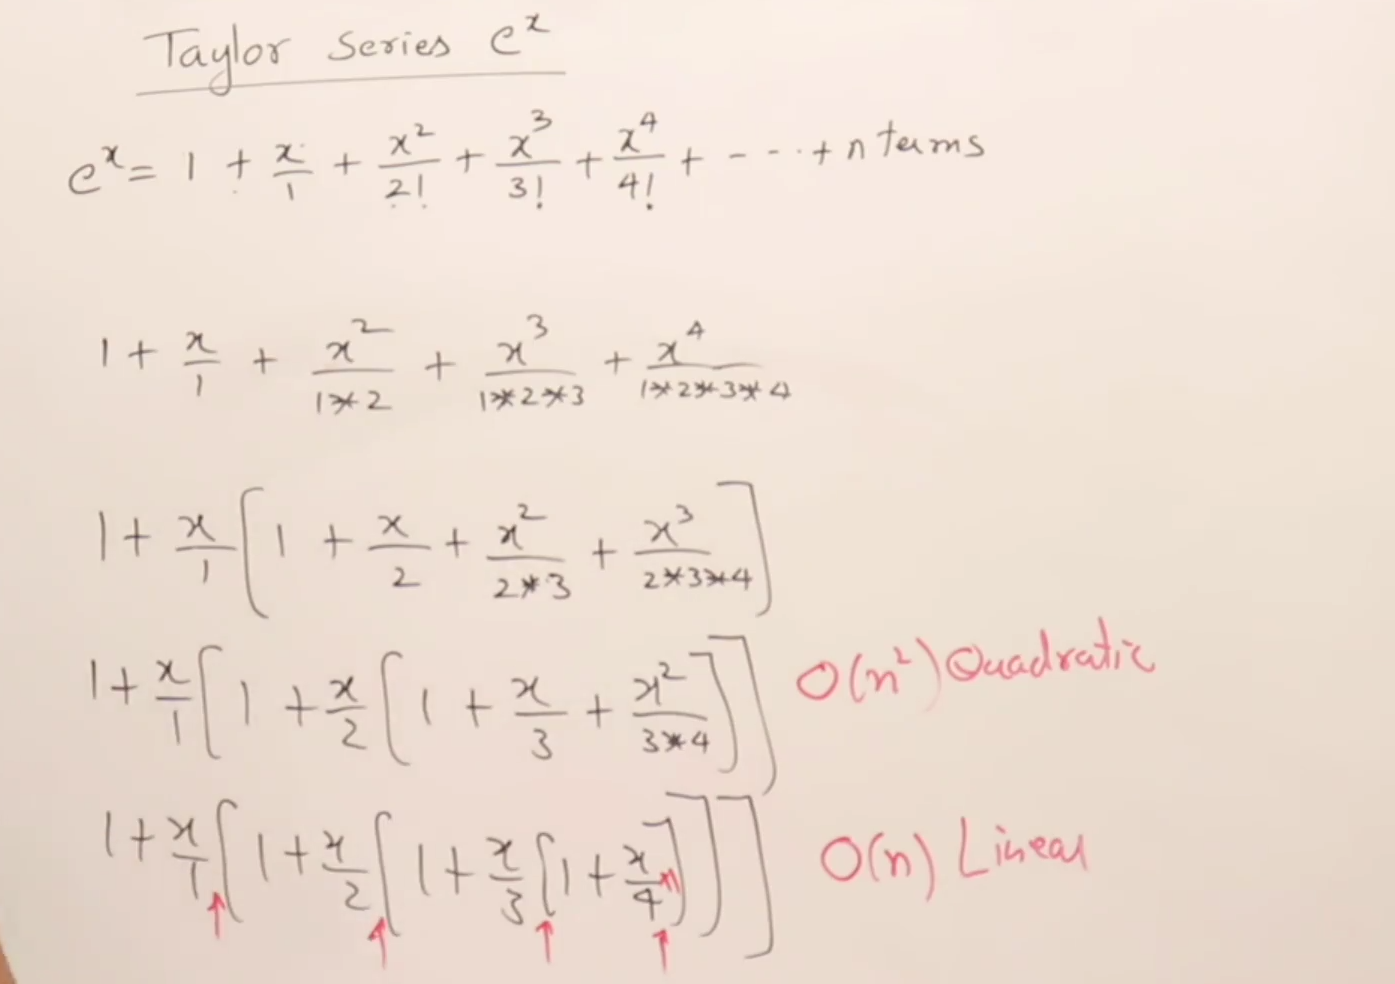 Taylor Series e^x
e^x = 1 + x/1 + x^2/2! + x^3/3! + x^4/4! + - - - · + n terms
1 + x/1 + x^2/(1*2) + x^3/(1*2*3) + x^4/(1*2*3*4)
1 + x/1 [ 1 + x/2 + x^2/(2*3) + x^3/(2*3*4) ]
1 + x/1 [ 1 + x/2 [ 1 + x/3 + x^2/(3*4) ] ] O(n^2) Quadratic
1 + x/1 [ 1 + x/2 [ 1 + x/3 [ 1 + x/4 ] ] ] O(n) Linear
↑ ↑ ↑ ↑